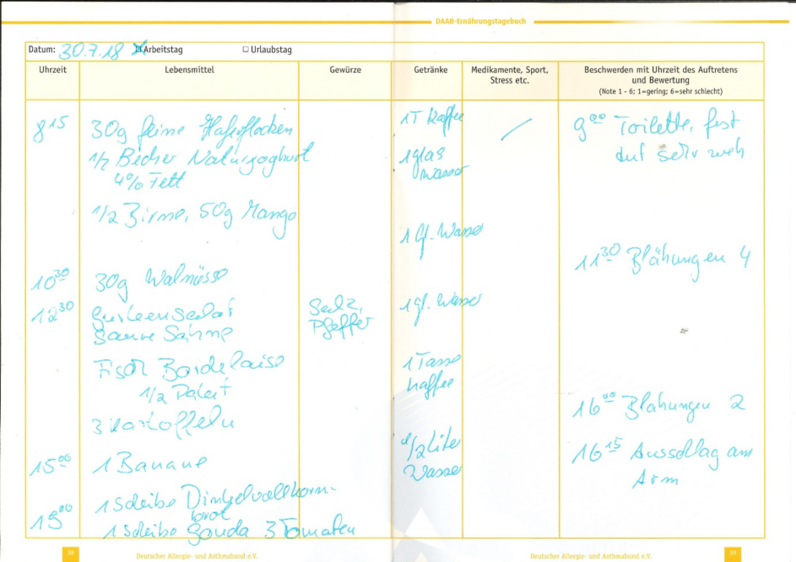 DAAB-Ernährungstagebuch
Datum: 30.7.18 ☒ Arbeitstag ☐ Urlaubstag
Uhrzeit Lebensmittel Gewürze Getränke Medikamente, Sport, Stress etc. Beschwerden mit Uhrzeit des Auftretens und Bewertung
(Note 1 - 6; 1=gering; 6=sehr schlecht)
8 15 30g feine Haferflocken 1T Kaffee 9 00 Toilette, fest
1/2 Becher Naturjoghurt 1 Glas tut sehr weh
4% Fett Wasser
1/2 Birne, 50g Mango
1 Gl. Wasser
11 30 Blähungen 4
10 30 30g Walnüsse
12 30 Gurkensalat Salz, 1 Gl. Wasser
Saure Sahne Pfeffer
Fisch Bordelaise 1 Tasse
1/2 Paket Kaffee
16 00 Blähungen 2
3 Kartoffeln
1/2 Liter 16 15 Ausschlag am
15 00 1 Banane Wasser Arm
1 Scheibe Dinkelvollkorn-
19 00 brot
1 Scheibe Gouda 3 Tomaten
Deutscher Allergie- und Asthmabund e.V.
Deutscher Allergie- und Asthmabund e.V.